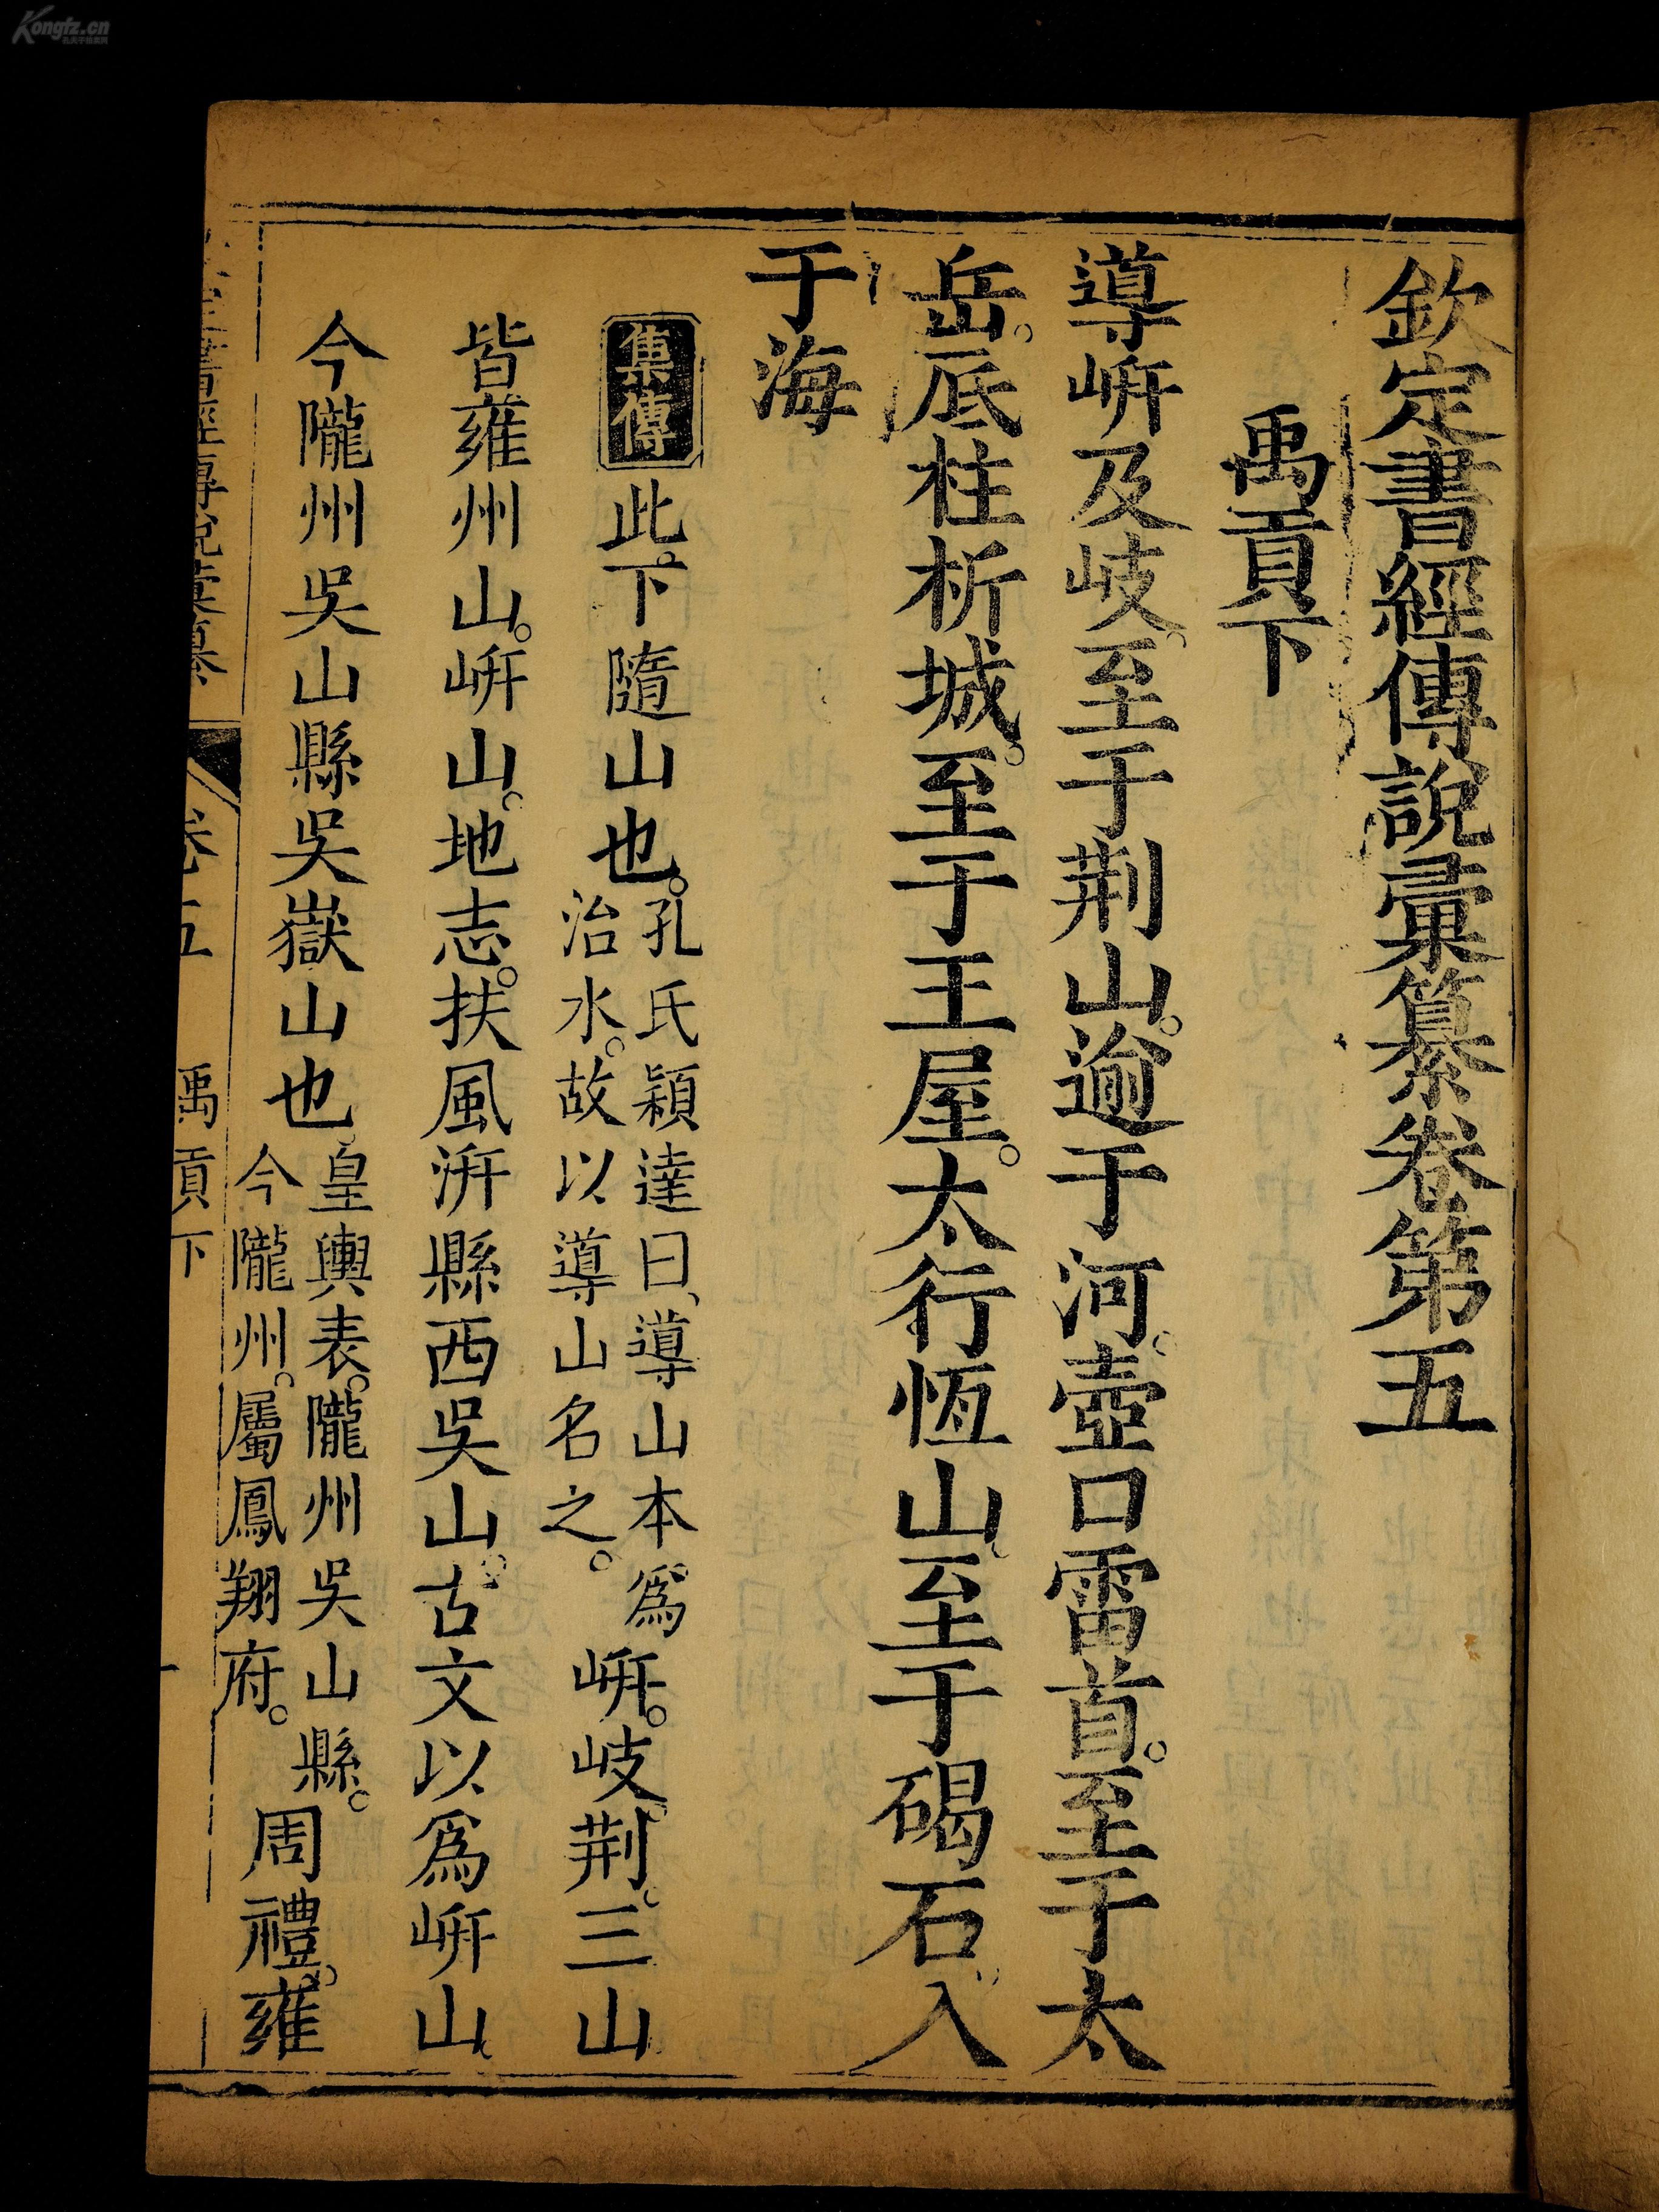 Kongfz.cn
欽定書經傳說彙纂卷第五
禹貢下
導岍及岐至于荆山逾于河壺口雷首至于太
岳底柱析城至于王屋太行恆山至于碣石入
于海
集傳 此下隨山也孔氏穎達曰導山本爲
治水故以導山名之 岍岐荆三山
皆雍州山岍山地志扶風汧縣西吳山古文以爲岍山
今隴州吳山縣吳嶽山也皇輿表隴州吳山縣
今隴州屬鳳翔府 周禮雍
書經傳說彙纂
卷五 禹貢下 一